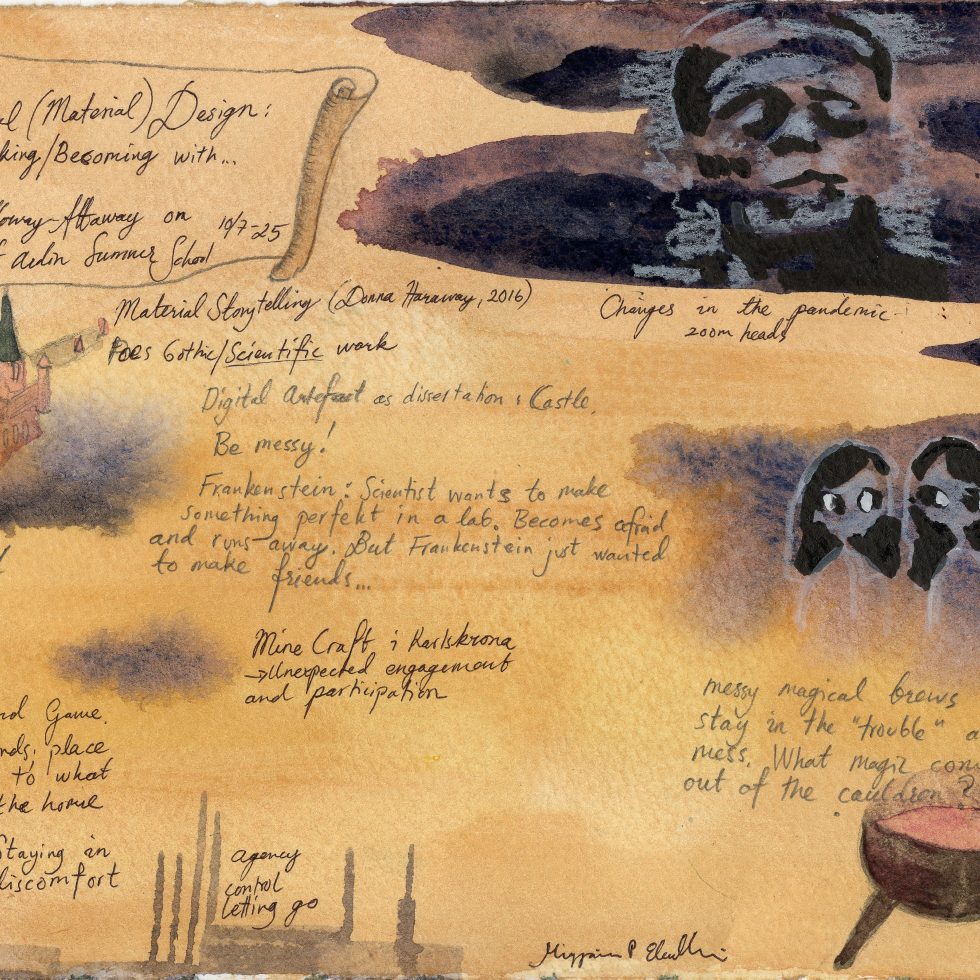 (Material) Design:
king/Becoming with...
oway-Attaway on 10/7-25
f Ardin Summer School
Material Storytelling (Donna Haraway, 2016)
Changes in the pandemic
zoom heads
Poes Gothic/Scientific work
Digital Artefact as dissertation: Castle.
Be messy!
Frankenstein: Scientist wants to make
something perfekt in a lab. Becomes afriad
and runs away. But Frankenstein just wanted
to make friends...
Mine Craft i Karlskrona
→Unexpected engagement
and participation
messy magical brews
stay in the "trouble" a
mess. What magic com
out of the cauldron?
rd Game.
nds, place
to what
the home
Staying in
discomfort
agency
control
letting go